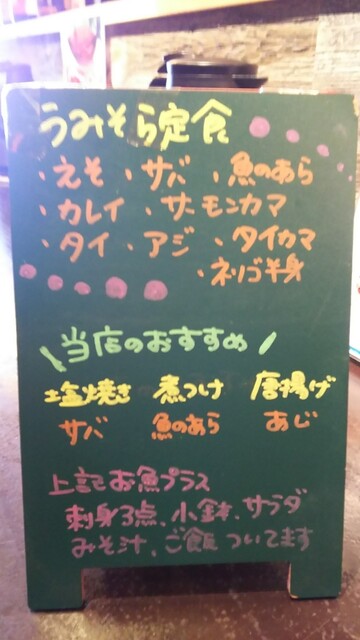 うみそら定食
・えそ ・サバ ・魚のあら
・カレイ ・サーモンカマ
・タイ ・アジ ・タイカマ
・ネリゴ半身
\当店のおすすめ/
塩焼き 煮つけ 唐揚げ
サバ 魚のあら あじ
上記お魚プラス
刺身3点、小鉢、サラダ
みそ汁、ご飯 ついてます